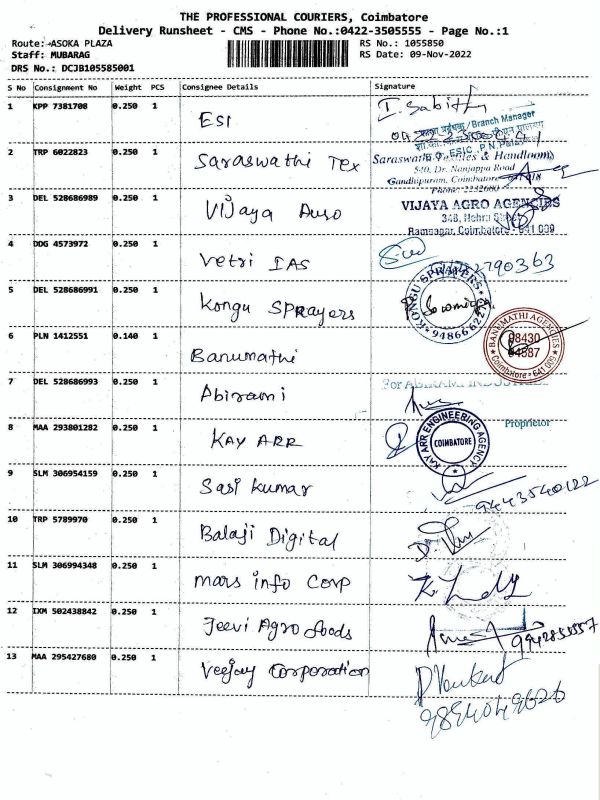 THE PROFESSIONAL COURIERS, Coimbatore
Delivery Runsheet - CMS - Phone No.:0422-3505555 - Page No.:1
Route: ASOKA PLAZA
RS No.: 1055850
Staff: MUBARAG
RS Date: 09-Nov-2022
DRS No.: DCJB105585001
S No Consignment No Weight PCS Consignee Details Signature
1 KPP 7381708 0.250 1 ESI
I. Sabitha
शाखा प्रबंधक / Branch Manager
B.O. ESIC, P.N.Palayam
2 TRP 6022823 0.250 1 Saraswathi Tex
Saraswathi Textiles & Handlooms
540, Dr. Nanjappa Road
Gandhipuram, Coimbatore - 641 018
Phone: 2232680
3 DEL 528686989 0.250 1 Vijaya Auro
VIJAYA AGRO AGENCIES
348, Nehru Street
Ramnagar, Coimbatore - 641 009
4 DDG 4573972 0.250 1 Vetri IAS
5 DEL 528686991 0.250 1 Kongu Sprayers
KONGU SPRAYERS
6 PLN 1412551 0.140 1 Banumathi
BANUMATHI AGENCIES
98430
94887
Coimbatore - 641 009
7 DEL 528686993 0.250 1 Abirami
For ABIRAMI INDUSTRIES
Proprietor
8 MAA 293801282 0.250 1 KAY ARR
KAY ARR ENGINEERING AGENCY
COIMBATORE
9 SLM 306954159 0.250 1 Sasi Kumar
9443540122
10 TRP 5789970 0.250 1 Balaji Digital
11 SLM 306994348 0.250 1 mars info Corp
12 IXM 502438842 0.250 1 Jeevi Agro foods
13 MAA 295427680 0.250 1 Veejay Corporation
9894049626